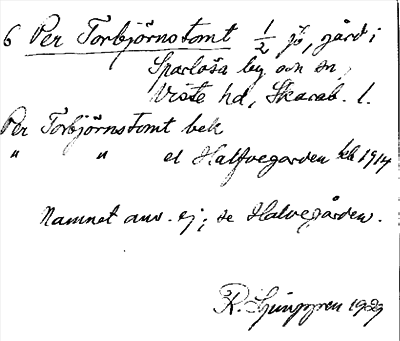 6 Per Torbjörnstomt 1/2 fö, gård i
Sparlösa by och sn,
Viste hd, Skarab. l.
Per Torbjörnstomt bek
" " el Halfvegarden kb 1914
Namnet anv. ej; se Halvegården.
R. Ljunggren 1929